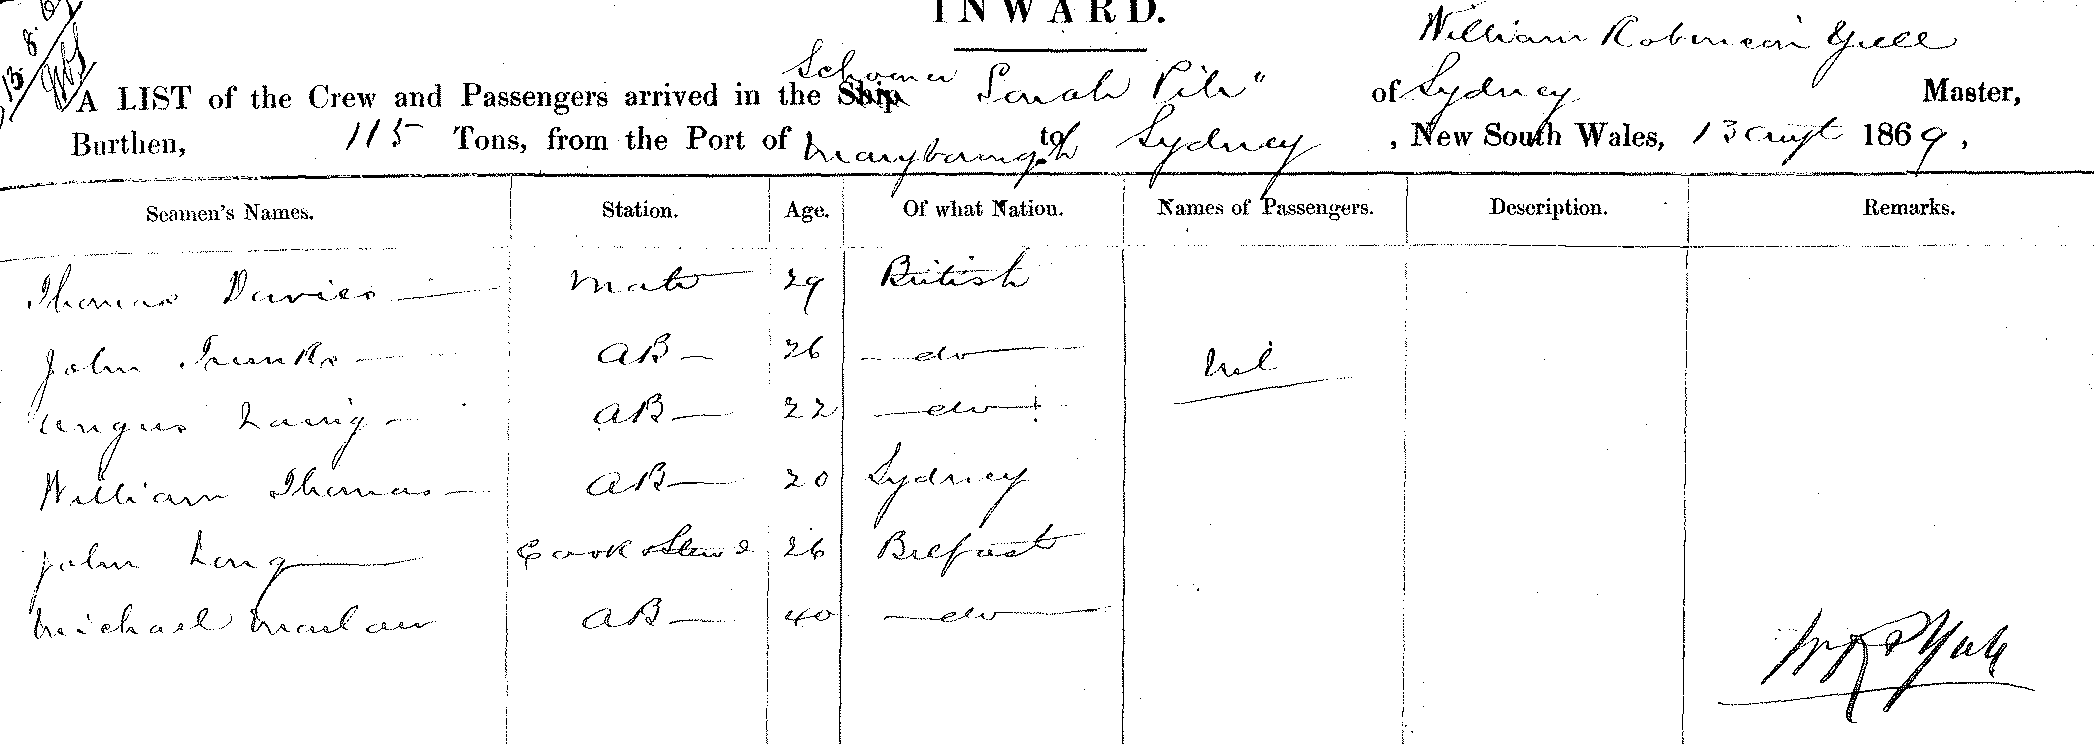 INWARD.
13.8.69
William Robinson Yull
A LIST of the Crew and Passengers arrived in the Ship Schooner Sarah Pile" of Sydney Master,
Burthen, 115 Tons, from the Port of Maryborough to Sydney, New South Wales, 13 Augt 1869,
Seamen's Names. Station. Age. Of what Nation. Names of Passengers. Description. Remarks.
Thomas Davies Mate 29 British
John Trunks AB 26 do Nil
Angus Laing AB 22 do
William Thomas AB 20 Sydney
John Long Cook & Stewd 26 Belfast
Michael AB 40 do